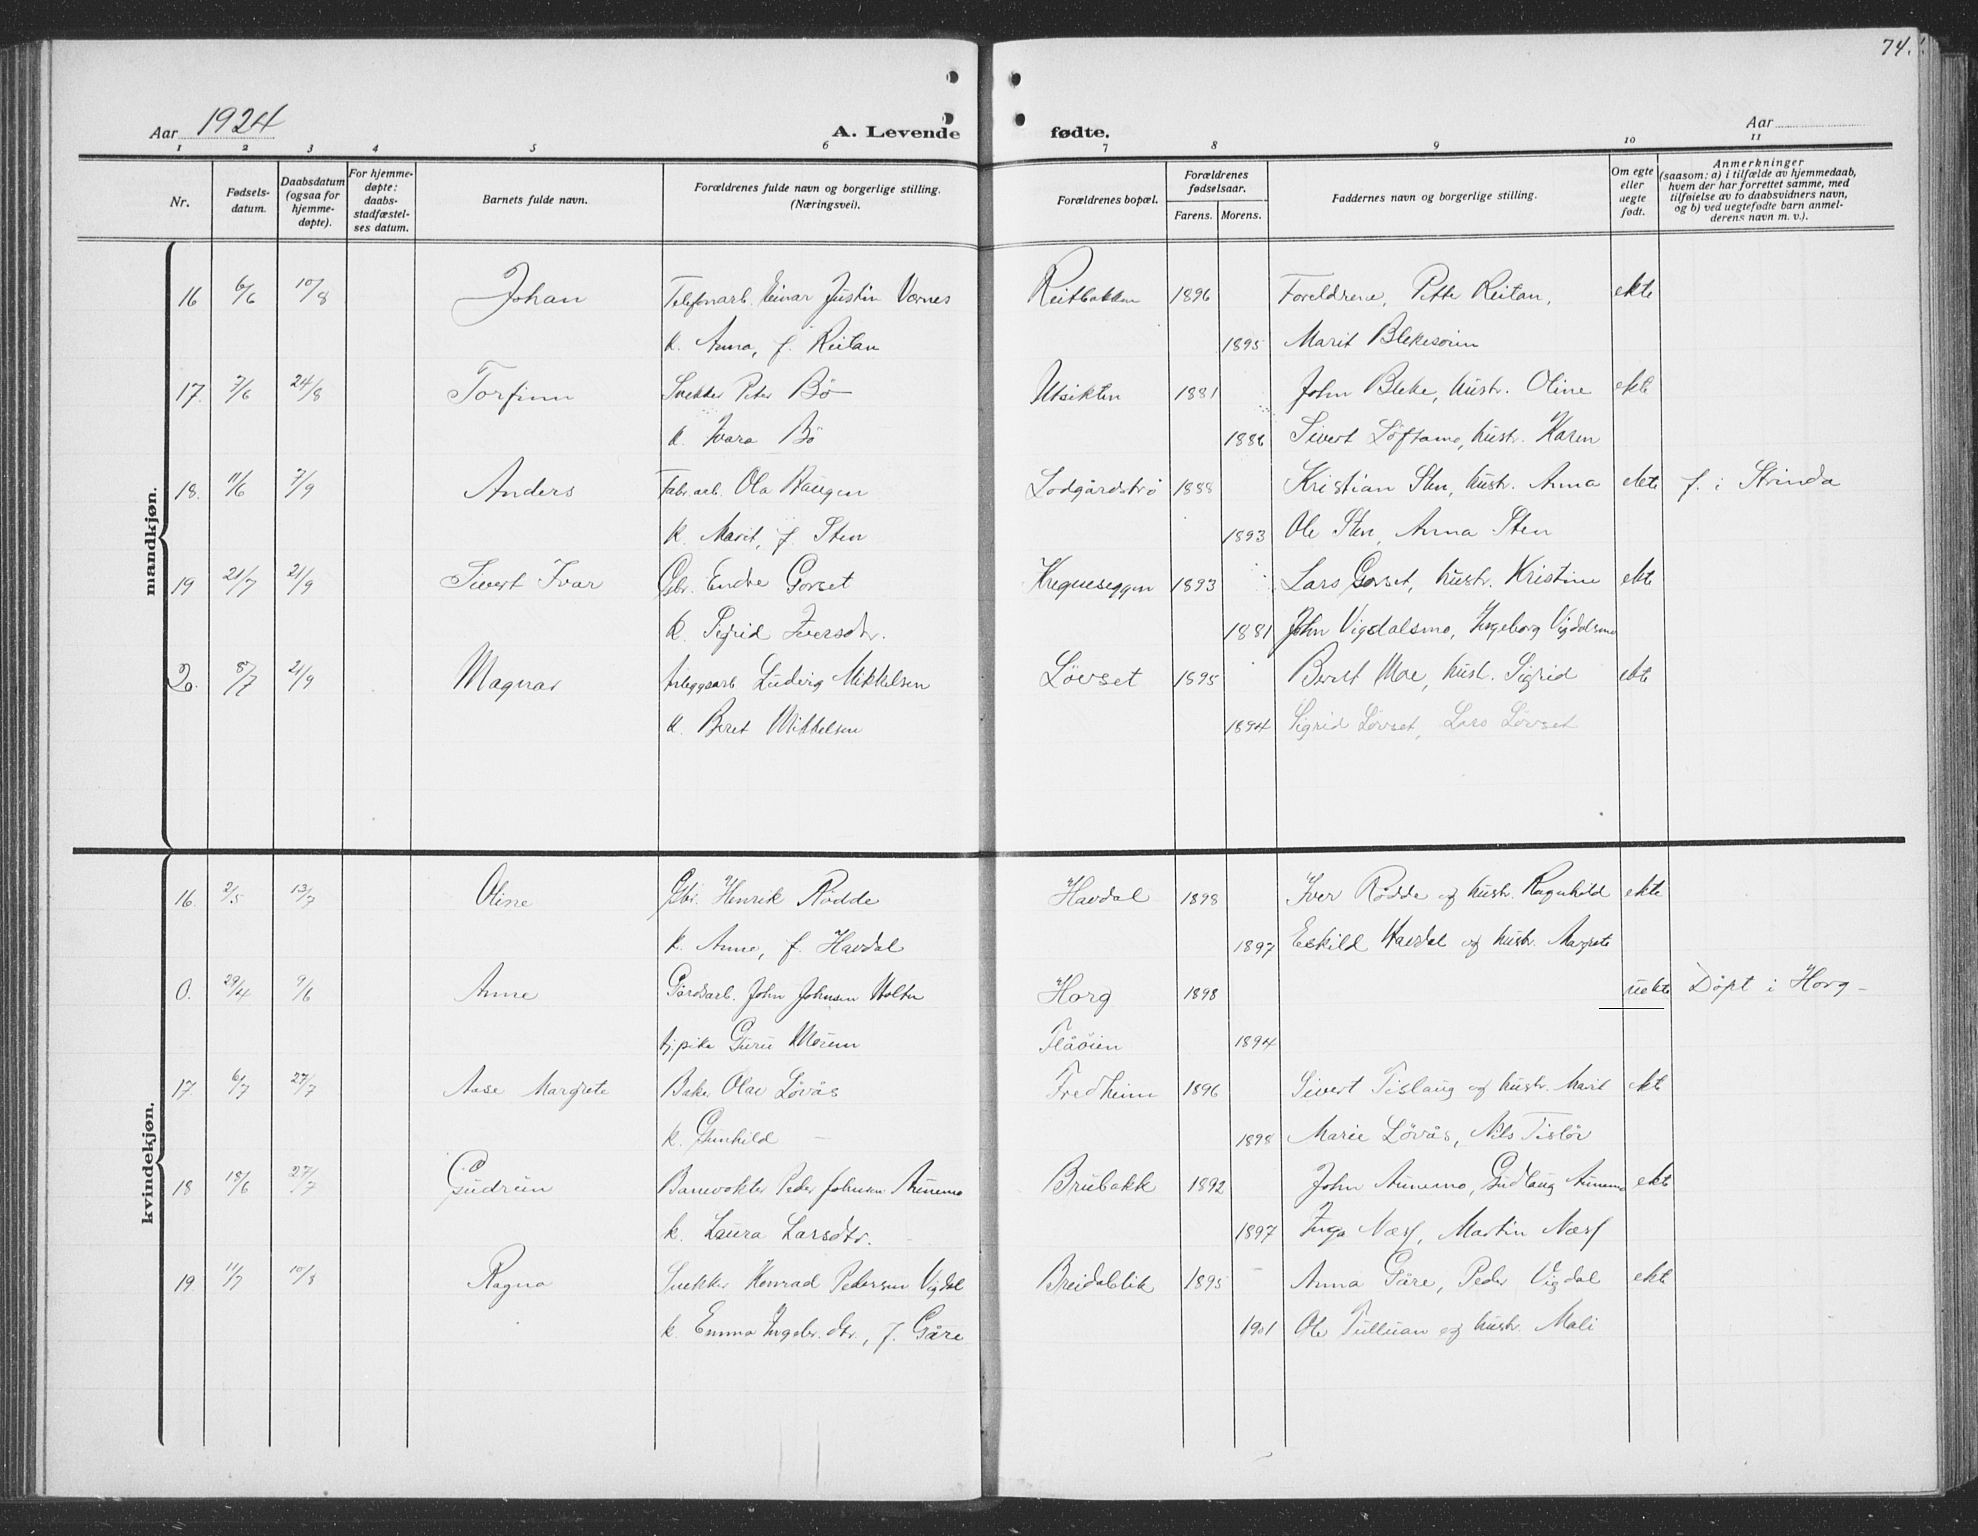 74.
Aar 1924 A. Levende fødte. Aar
1 2 3 4 5 6 7 8 9 10 11
Nr. Fødsels-datum. Daabsdatum (ogsaa for hjemme-døpte). For hjemme-døpte: daabs-stadfæstel-ses datum. Barnets fulde navn. Forældrenes fulde navn og borgerlige stilling. (Næringsvei). Forældrenes bopæl. Forældrenes fødselsaar. Farens. Morens. Faddernes navn og borgerlige stilling. Om egte eller uegte født. Anmerkninger (saasom: a) i tilfælde av hjemmedaab, hvem der har forrettet samme, med tilføielse av to daabsvidners navn, og b) ved uegtefødte barn anmel-derens navn m. v.).
mandkjøn.
16 6/6 10/8 Johan Telefonarb. Einar Justin Vornes Reitbakken 1896 Foreldrene, Petter Reitan, ekte
k. Anna, f. Reitan 1895 Marit Blekesøien
17. 7/6 24/8 Torfinn Snekker Peter Bø Utsikten 1881 John Bleke, hustr. Oline ekte
k. Ivara Bø 1886 Sivert Løftamo, hustr. Karen
18. 11/6 7/9 Anders Fabr.arb. Ola Haugen Lodgårdstrø 1888 Kristian Sten, hustr. Anna ekte f. i Strinda
k. Marit, f. Sten 1893 Ole Sten, Anna Sten
19 21/7 21/9 Sivert Ivar Gbr. Endre Gorset 1893 Lars Gorset, hustr. Kristine ekte
k. Sigrid Iversdtr. 1881 John Vigdalsmo, Ingeborg Vigdalsmo
20. 8/7 21/9 Magnar Anleggsarb. Ludvig Mikkelsen Løvset 1895 Berdt Moe, hust. Sigrid ekte
k. Beret Mikkelsen 1894 Sigrid Løvset, Lars Løvset
kvindekjøn.
16. 2/5 13/7 Oline Gbr. Henrik Rødde Havdal 1898 Iver Rødde og hustr. Ragnhild ekte
k. Anne, f. Havdal 1897 Eskild Havdal og hustr. Margrete
0. 29/4 9/6 Anne Gårdsarb. John Johnsen Holten Horg 1898 uekte Døpt i Horg -
tj.pike Guru Moum Flåøien 1894
17. 6/7 27/7 Aase Margrete Baker Olav Løvås Fredheim 1896 Sivert Tislaug og hustr. Marit ekte
k. Gunhild - 1898 Marie Løvås, Nils Tisløv
18 18/6 27/7 Gudrun Banevokter Peder Johnsen Aunemo Brubakk 1892 John Aunemo, Gudlaug Aunemo ekte
k. Laura Larsdtr. 1897 Inga Næss, Martin Næss
19. 11/7 10/8 Ragna Snekker Konrad Pedersen Vigdal Breidablik 1895 Anna Gåre, Peder Vigdal ekte
k. Emma Ingebr.dtr., f. Gåre 1901 Ole Tulluan og hustr. Mali